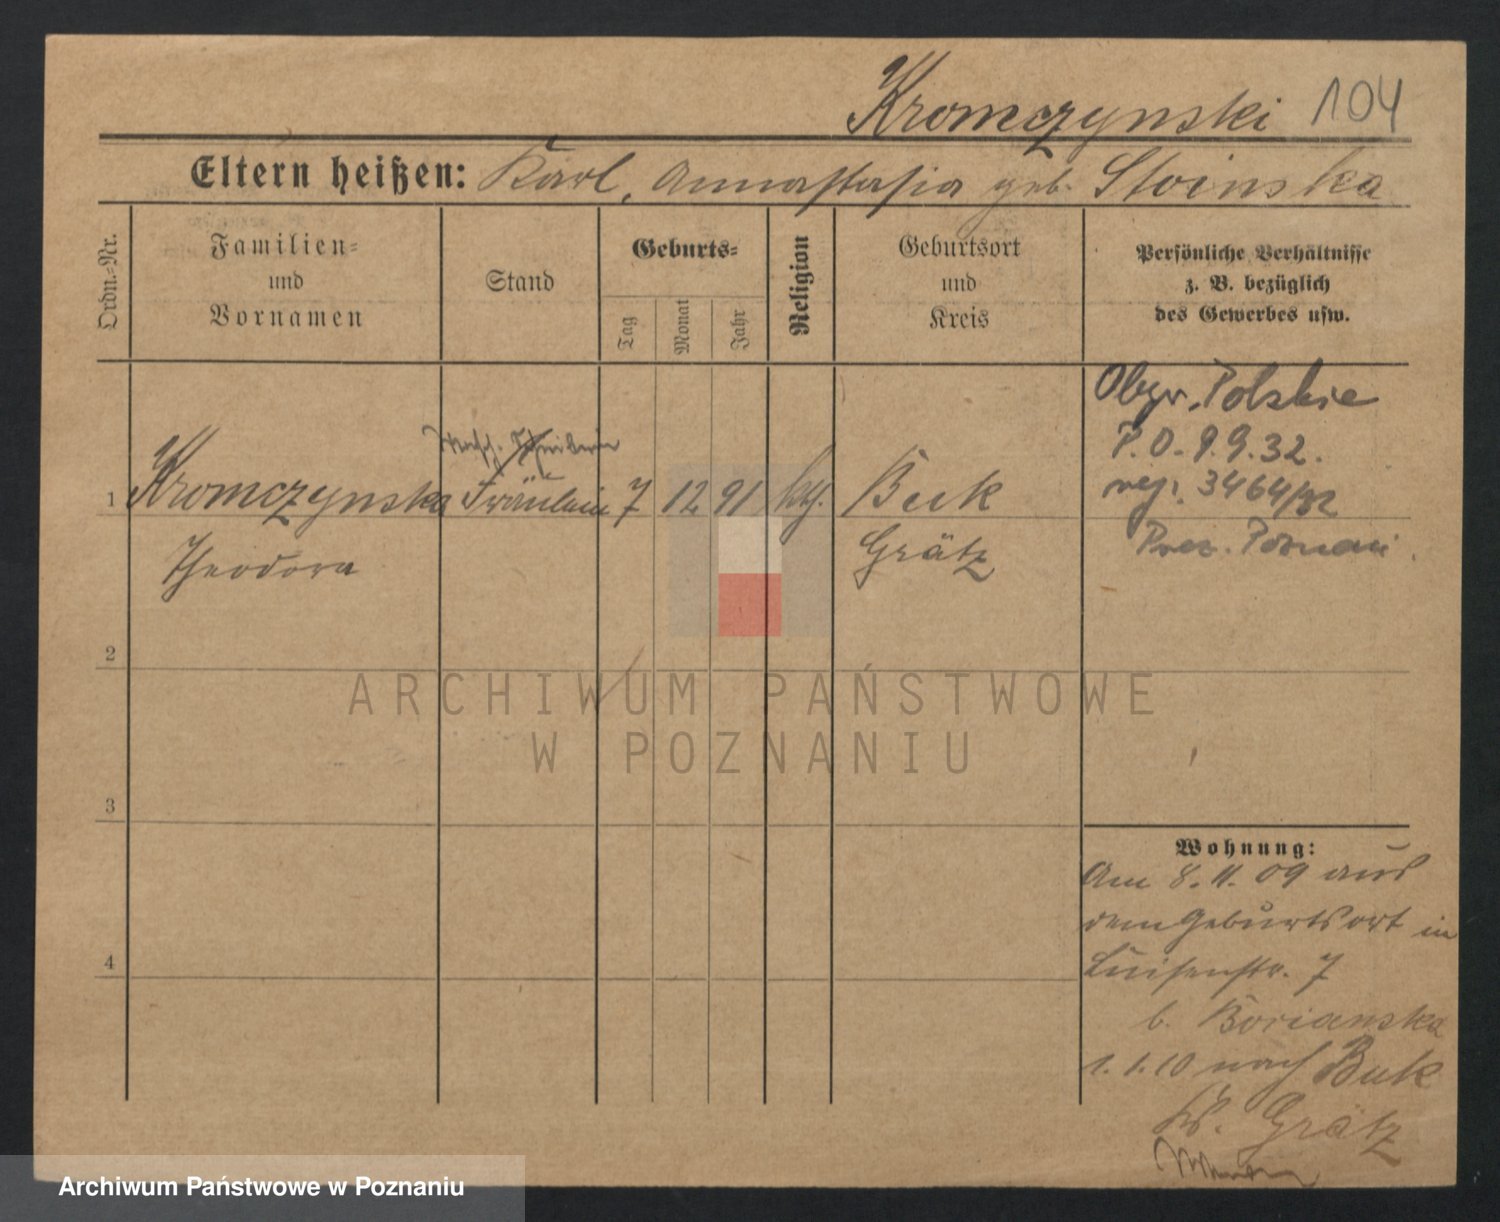 Kromczynski 104
Eltern heißen: Karl, Annastasia geb. Stoinska
Ordn.-Nr.
Familien-
und
Vornamen
Stand
Geburts-
Tag
Monat
Jahr
Religion
Geburtsort
und
Kreis
Persönliche Verhältnisse
z. B. bezüglich
des Gewerbes usw.
1 Kromczynska Fräulein 7 12 91 kth. Buk
Theodora
Grätz
Obyw. Polskie
P.O. 9.9.32.
rej. 3464/32
Prez. Poznań.
2
3
4
Wohnung:
Am 8.11.09 aus
dem Geburtsort in
Luisenstr. 7
b. Borianska
1.1.10 nach Buk
Kr. Grätz
ARCHIWUM PAŃSTWOWE
W POZNANIU
Archiwum Państwowe w Poznaniu